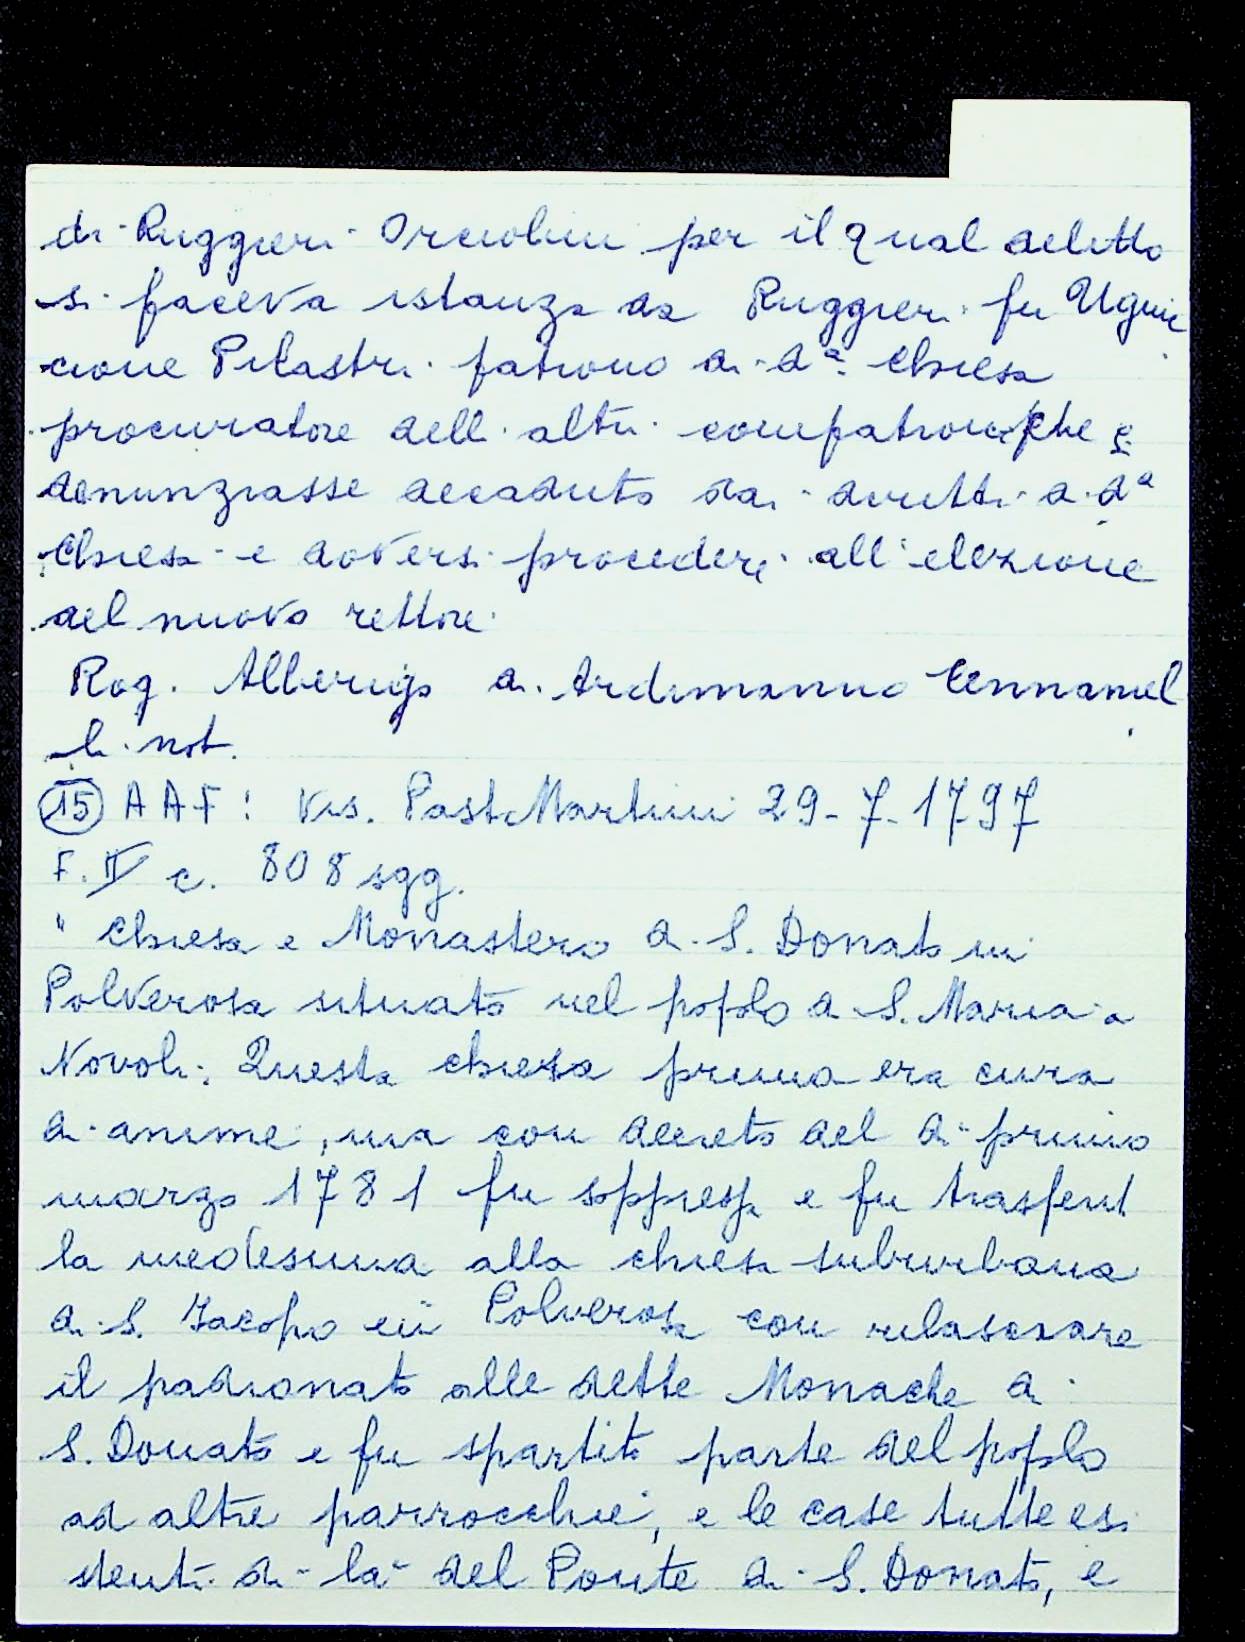 di Ruggieri Orciolini per il qual delitto
si faceva istanza da Ruggieri fu Uguic
cione Pilastri patrono di d.ª chiesa
procuratore delli altri compatroni che si
denunziasse decaduto dai diritti di d.ª
Chiesa e doversi procedere all'elezione
del nuovo rettore.
Rog. Alberigo di Ardimanno
li not.
(15) A A F: Vis. Past. Martini 29-7-1797
F. IV c. 808 sgg.
" Chiesa e Monastero di S. Donato in
Polverosa situato nel popolo di S. Maria a
Novoli. Questa chiesa prima era cura
di anime, ma con decreto del dì primo
marzo 1781 fu soppressa e fu trasferit
la medesima alla chiesa suburbana
di S. Jacopo in Polverosa con rilasciare
il padronato alle dette Monache di
S. Donato e fu spartito parte del popolo
ad altre parrocchie, e le case tutte esi
stenti di là del Ponte di S. Donato, e